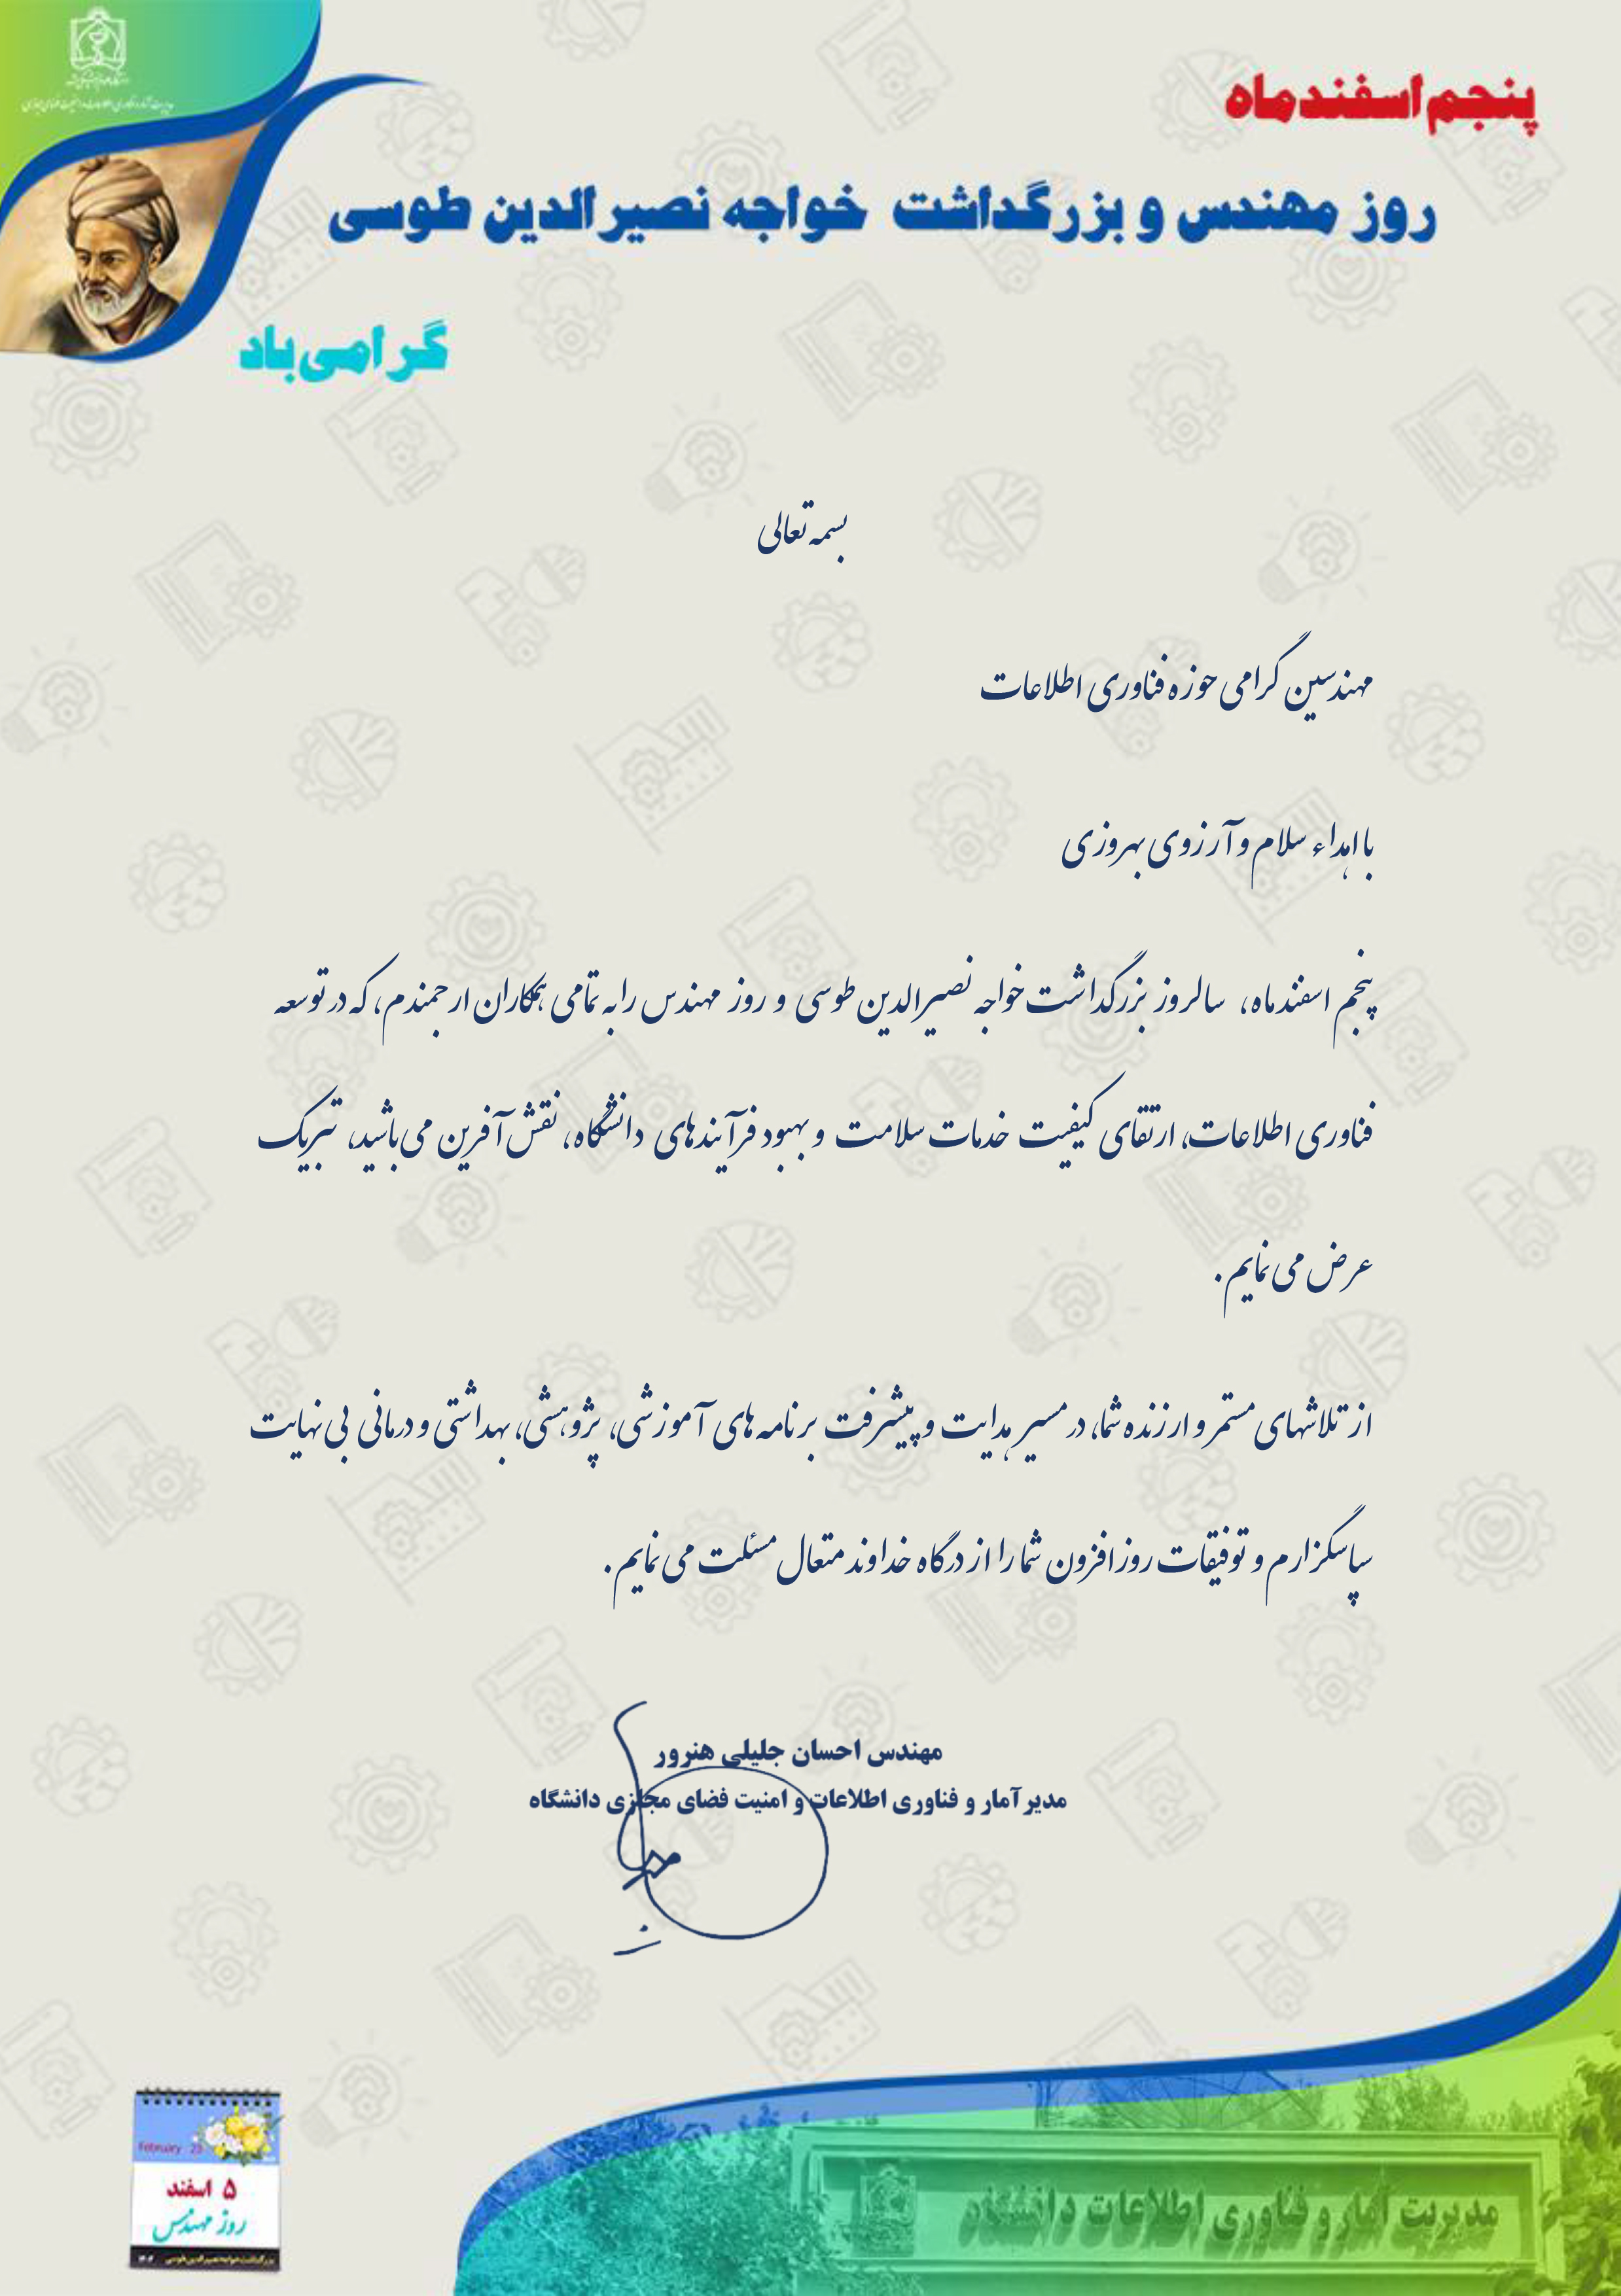 پنجم اسفندماه
روز مهندس و بزرگداشت خواجه نصیرالدین طوسی
گرامی‌باد
بسمه تعالی
مهندسین گرامی حوزه فناوری اطلاعات
با اهداء سلام و آرزوی بهروزی
پنجم اسفندماه، سالروز بزرگداشت خواجه نصیرالدین طوسی و روز مهندس را به تمامی همکاران ارجمندم، که در توسعه
فناوری اطلاعات، ارتقای کیفیت خدمات سلامت و بهبود فرآیندهای دانشگاه، نقش آفرین می‌باشید، تبریک
عرض می نمایم.
از تلاشهای مستمر و ارزنده شما، در مسیر هدایت و پیشرفت برنامه های آموزشی، پژوهشی، بهداشتی و درمانی بی نهایت
سپاسگزارم و توفیقات روزافزون شما را از درگاه خداوند متعال مسئلت می نمایم.
مهندس احسان جلیلی هنرور
مدیر آمار و فناوری اطلاعات و امنیت فضای مجازی دانشگاه
February 23
۵ اسفند
روز مهندس
بزرگداشت خواجه نصیرالدین طوسی
مدیریت آمار و فناوری اطلاعات دانشگاه